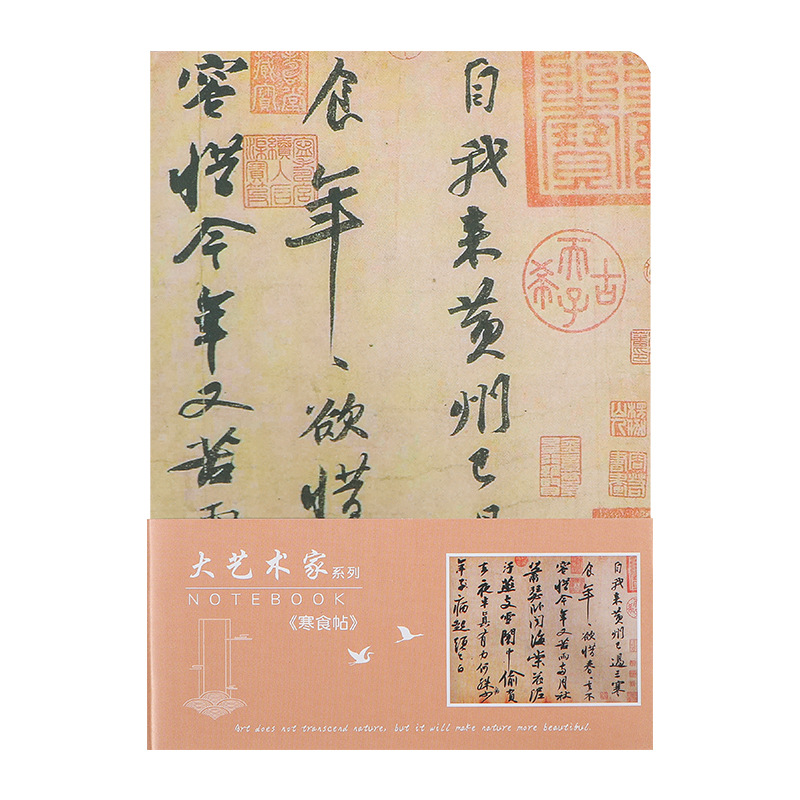 自我来黄州已
食年〻欲惜
容惜今年又苦雨
古希天子
大艺术家系列
NOTEBOOK
《寒食帖》
自我来黄州已过三寒
食年〻欲惜春〻去不
容惜今年又苦雨两月秋
萧瑟卧闻海棠花泥
汙燕支雪闇中偷負
去夜半真有力何殊少
年子病起頭已白
Art does not transcend nature, but it will make nature more beautiful.